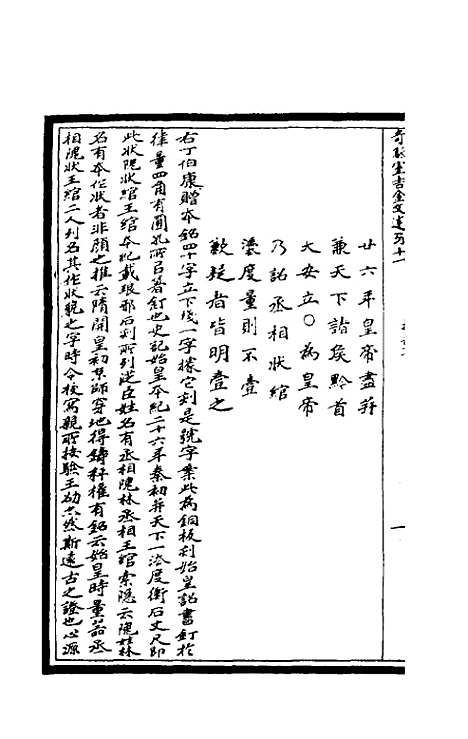 奇觚室吉金文述 卷十一
廿六年皇帝盡并
兼天下諸矦黔首
大安立〇為皇帝
乃詔丞相狀綰
灋度量則不壹
歉疑者皆明壹之
右丁伯康贈本銘四十字立下殘一字揆它刻是號字案此為銅板刻始皇詔書釘於
律量四角有圓孔所㠯著釘也史記始皇本紀二十六年秦初并天下一灋度衡石丈尺即
此狀隗狀綰王綰本紀載琅邪石刻所列從臣姓名有丞相隗林丞相王綰索隱云隗姓林
名有本作狀者非顏之推云隋開皇初京師穿地得鑄秤權有銘云始皇時量器丞
相隗狀王綰二人列名其作狀貌之字時令校寫親所按驗王劭亦然斯遠古之證也心源